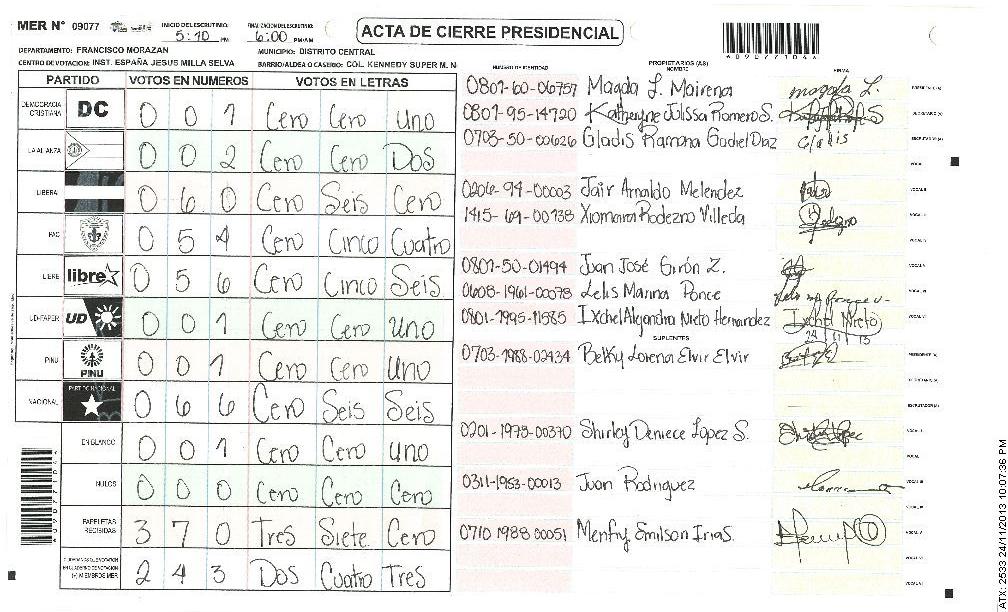 MER N° 09077
INICIO DEL ESCRUTINIO: 5:10 PM
FINALIZACION DEL ESCRUTINIO: 6:00 PM/AM
ACTA DE CIERRE PRESIDENCIAL
DEPARTAMENTO: FRANCISCO MORAZAN
MUNICIPIO: DISTRITO CENTRAL
CENTRO DE VOTACION: INST. ESPAÑA JESUS MILLA SELVA
BARRIO/ALDEA O CASERIO: COL KENNEDY SUPER M. N
PARTIDO VOTOS EN NUMEROS VOTOS EN LETRAS
DEMOCRACIA CRISTIANA DC 0 0 1 Cero Cero uno
LA ALIANZA 0 0 2 Cero Cero Dos
LIBERAL 0 6 0 Cero Seis Cero
PAC 0 5 4 Cero Cinco Cuatro
LIBRE libre 0 5 6 Cero Cinco Seis
UD-FAPER UD 0 0 1 Cero Cero uno
PINU PINU 0 0 1 Cero Cero uno
NACIONAL PARTIDO NACIONAL 0 6 6 Cero Seis Seis
EN BLANCO 0 0 1 Cero Cero uno
NULOS 0 0 0 Cero Cero Cero
PAPELETAS RECIBIDAS 3 7 0 Tres Siete Cero
(+) MIEMBROS MER 2 4 3 Dos Cuatro Tres
NUMERO DE IDENTIDAD PROPIETARIOS (AS) NOMBRE FIRMA
0801-60-06757 Magda L. Mairena magda L. PRESIDENTE (A)
0801-95-14720 Katheryne Julissa Romero S. SECRETARIO (A)
0703-50-00626 Gladis Ramona Gadiel Diaz Gladis ESCRUTADOR (A)
VOCAL I
0206-94-00003 Jair Arnaldo Melendez VOCAL II
1415-69-00738 Xiomara Rodezno Villeda VOCAL III
VOCAL IV
0801-50-01494 Juan José Girón Z. VOCAL V
0608-1961-00078 Lelis Marina Ponce VOCAL VI
0801-1995-11585 Ixchel Alejandra Nieto Hernandez Ixchel Nieto
24 11 13
SUPLENTES
0703-1988-02434 Betky Lorena Elvir Elvir PRESIDENTE (A)
SECRETARIO (A)
ESCRUTADOR (A)
0201-1978-00370 Shirley Deniece Lopez S. VOCAL I
VOCAL II
0311-1983-00013 Juan Rodriguez VOCAL III
VOCAL IV
0710 1988 00051 Menfry Emilson Irias. VOCAL V
VOCAL VI
ATX: 2533 24/11/2013 10:07:36 PM